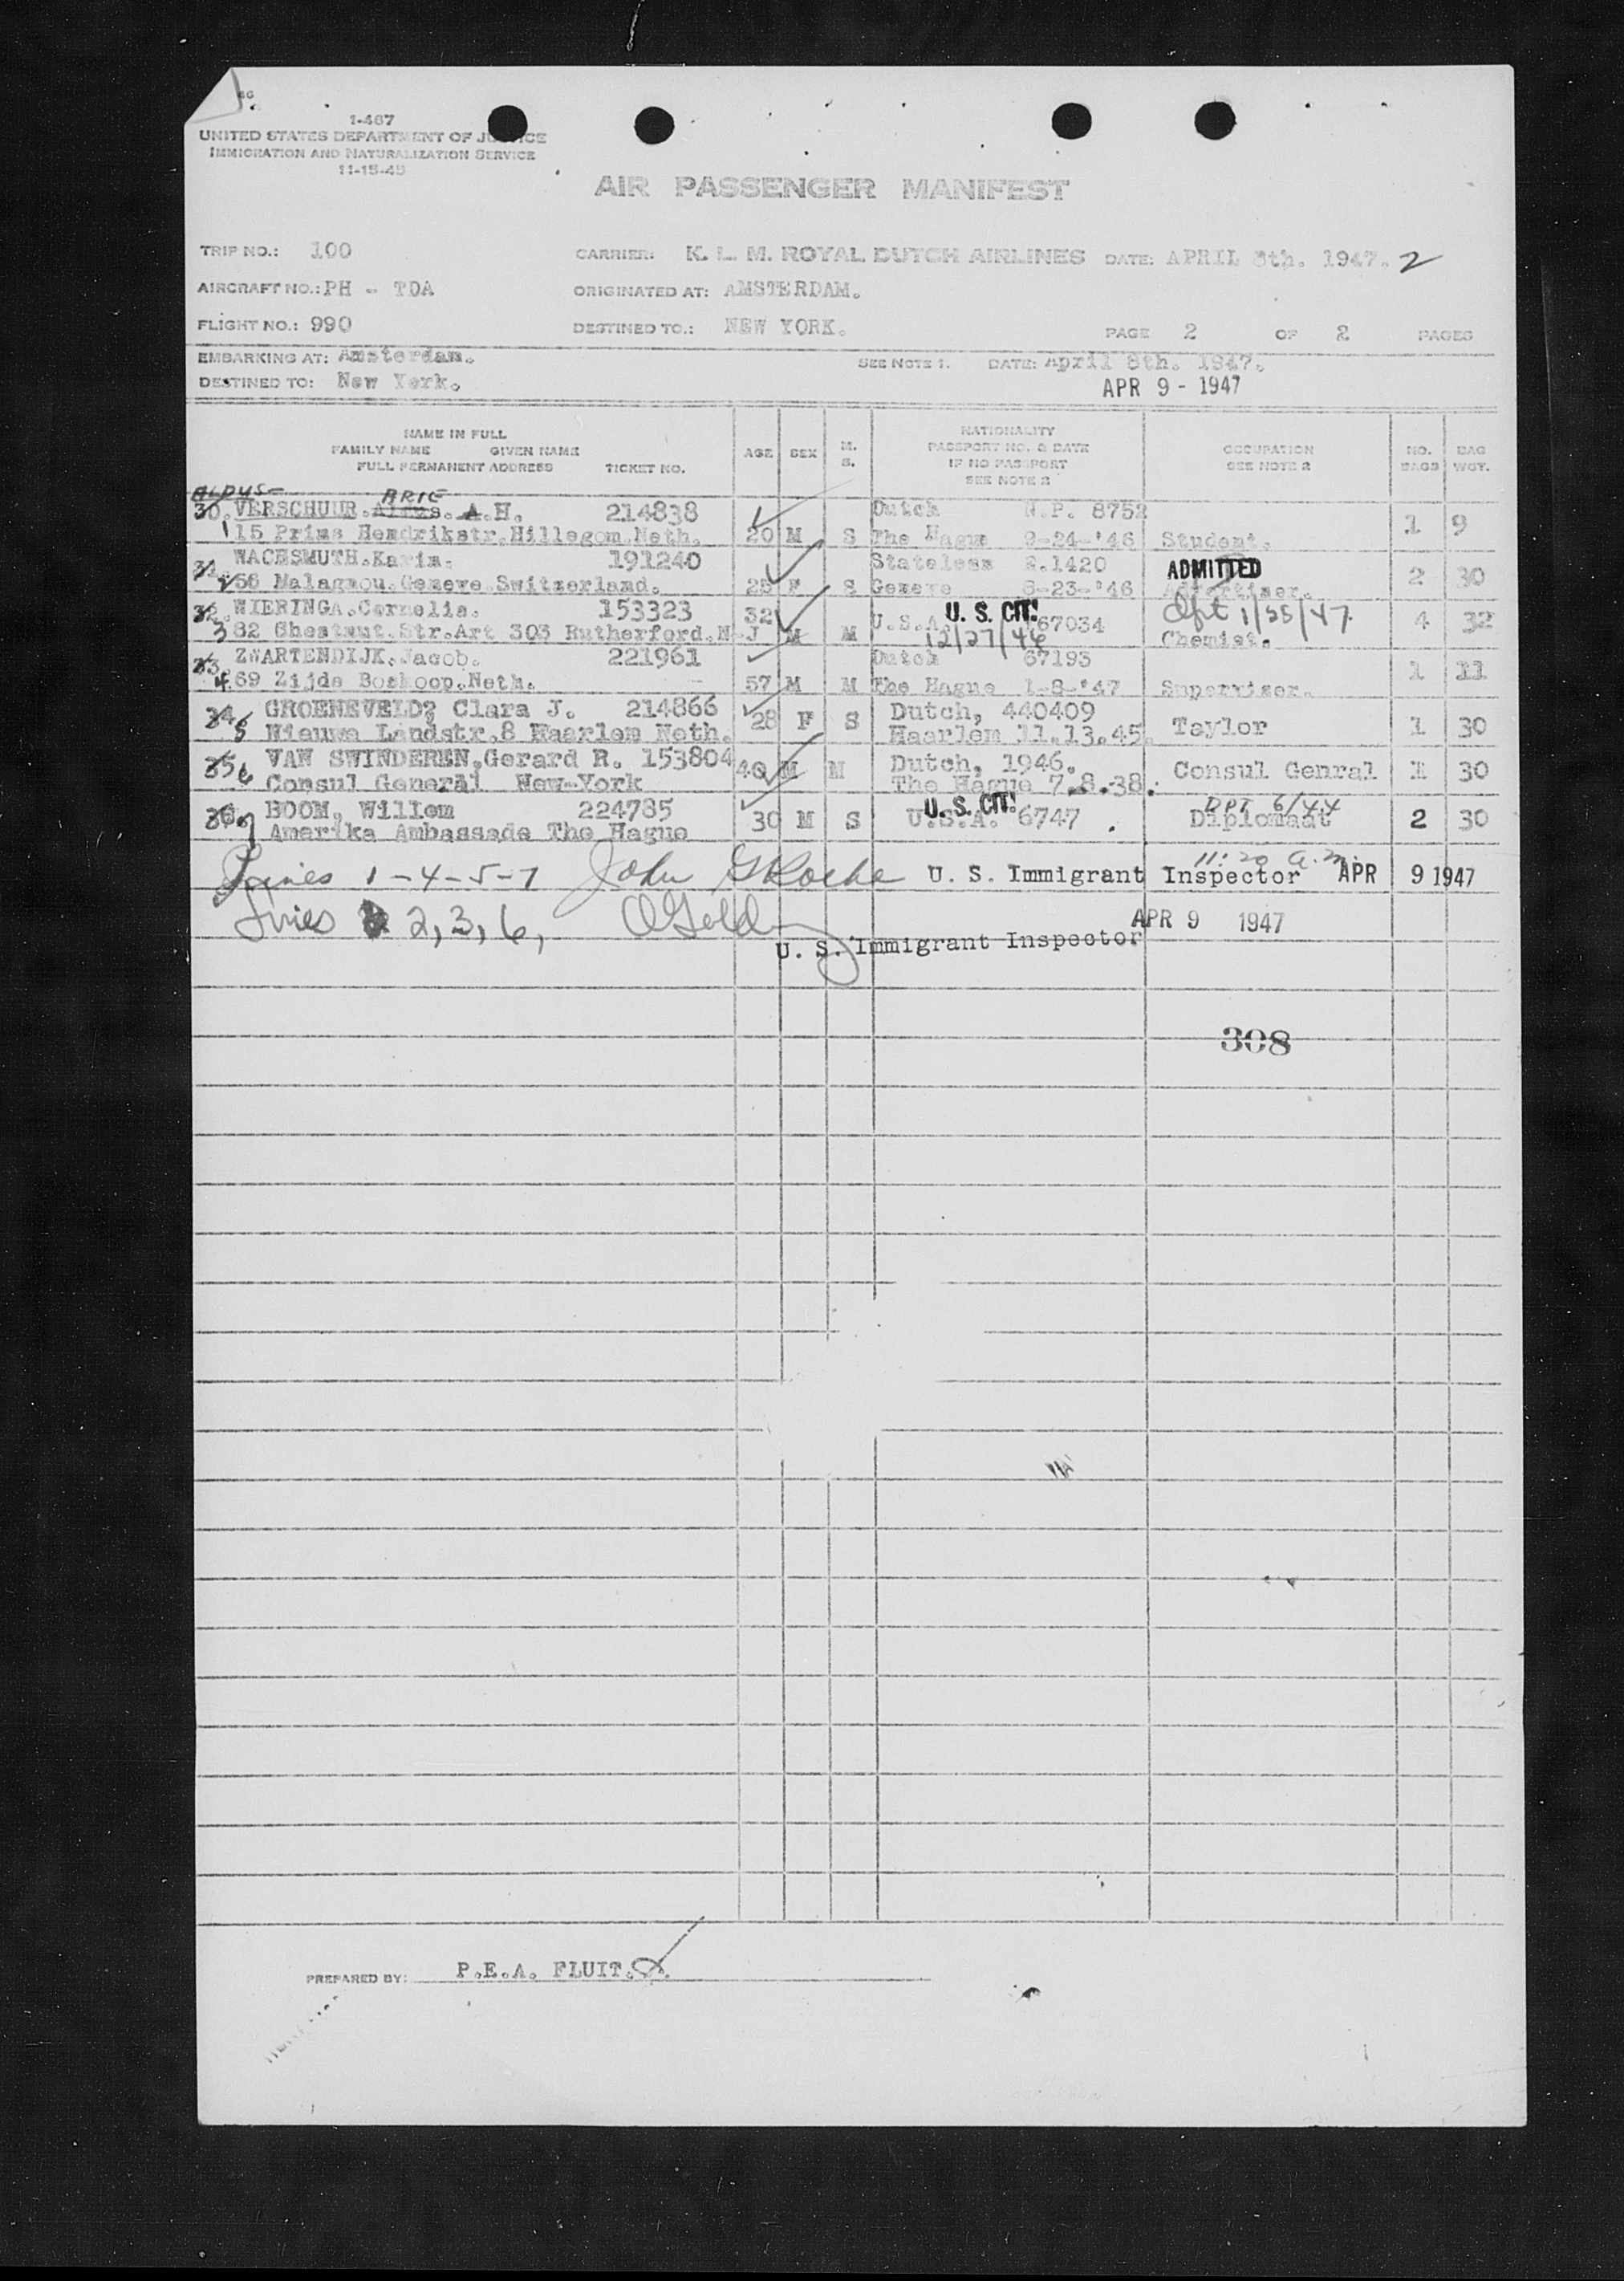 1-467
UNITED STATES DEPARTMENT OF JUSTICE
IMMIGRATION AND NATURALIZATION SERVICE
11-15-45
AIR PASSENGER MANIFEST
TRIP NO.: 100 CARRIER: K. L. M. ROYAL DUTCH AIRLINES DATE: APRIL 8th. 1947. 2
AIRCRAFT NO.: PH - TDA ORIGINATED AT: AMSTERDAM.
FLIGHT NO.: 990 DESTINED TO.: NEW YORK. PAGE 2 OF 2 PAGES
EMBARKING AT: Amsterdam. SEE NOTE 1. DATE: April 8th. 1947.
DESTINED TO: New York. APR 9 - 1947
NAME IN FULL
FAMILY NAME GIVEN NAME
FULL PERMANENT ADDRESS TICKET NO.
AGE SEX M. S.
NATIONALITY
PASSPORT NO. & DATE
IF NO PASSPORT
SEE NOTE 2
OCCUPATION
SEE NOTE 2
NO. BAGS
BAG WGT.
ARIE
30. VERSCHUUR. A.H. 214838 Dutch N.P. 8752
1 15 Prins Hendrikstr.Hillegom.Neth. 20 M S The Hague 9-24-'46 Student. 1 9
31. WACHSMUTH.Karin. 191240 Stateless 2.1420 ADMITTED
56 Malagnou.Geneve.Switzerland. 25 F S Geneve 8-23-'46 Advertiser. 2 30
32. WIERINGA.Cornelis. 153323 32 U.S.A. U. S. CIT. 67034 Dpt 1/25/47.
3 82 Chestnut.Str.Art 303 Rutherford.N-J M M 12/27/46 Chemist. 4 32
33. ZWARTENDIJK.Jacob. 221961 Dutch 67193
4 69 Zijde Boskoop.Neth. 57 M M The Hague 1-8-'47 Supervisor. 1 11
34. GROENEVELD? Clara J. 214866 Dutch, 440409
5 Nieuwe Landstr.8 Haarlem Neth. 28 F S Haarlem 11.13.45. Taylor 1 30
35 VAN SWINDEREN,Gerard R. 153804 Dutch, 1946.
6 Consul General New-York 40 M M The Hague 7.8.38. Consul Genral 1 30
36. BOOM, Willem 224785 U. S. CIT. DPT 6/44
7 Amerika Ambassade The Hague 30 M S U.S.A. 6747 . Diplomaat 2 30
Lines 1-4-5-7 John G Roche U. S. Immigrant Inspector 11:20 a.m. APR 9 1947
Lines 2, 3, 6, O Gold APR 9 1947
U. S. Immigrant Inspector
308
PREPARED BY: P.E.A. FLUIT.